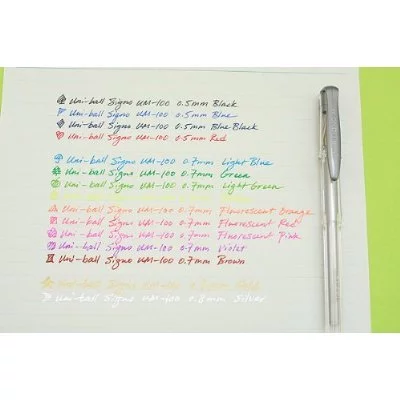 Uni-ball Signo UM-100 0.5mm Black
Uni-ball Signo UM-100 0.5mm Blue
Uni-ball Signo UM-100 0.5mm Blue Black
Uni-ball Signo UM-100 0.5mm Red
Uni-ball Signo UM-100 0.7mm Light Blue
Uni-ball Signo UM-100 0.7mm Green
Uni-ball Signo UM-100 0.7mm Light Green
Uni-ball Signo UM-100 0.7mm Fluorescent Orange
Uni-ball Signo UM-100 0.7mm Fluorescent Red
Uni-ball Signo UM-100 0.7mm Fluorescent Pink
Uni-ball Signo UM-100 0.7mm Violet
Uni-ball Signo UM-100 0.7mm Brown
Uni-ball Signo UM-100 0.8mm Gold
Uni-ball Signo UM-100 0.8mm Silver